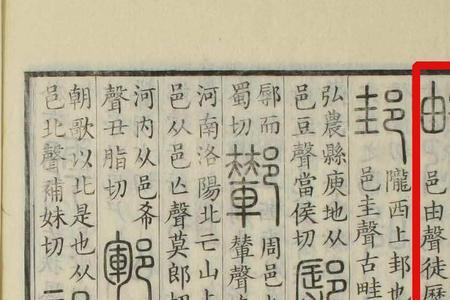 邑由聲徒歷
邽隴西上邽也
邑圭聲古畦
弘農縣庾地从
邑豆聲當侯切
郭而
蜀切
鄻周邑
輦聲輦
河南洛陽北亡山上
邑从邑亡聲莫郎切
河内从邑希
聲丑脂切
鄆
朝歌以北是也从
邑北聲補妹切